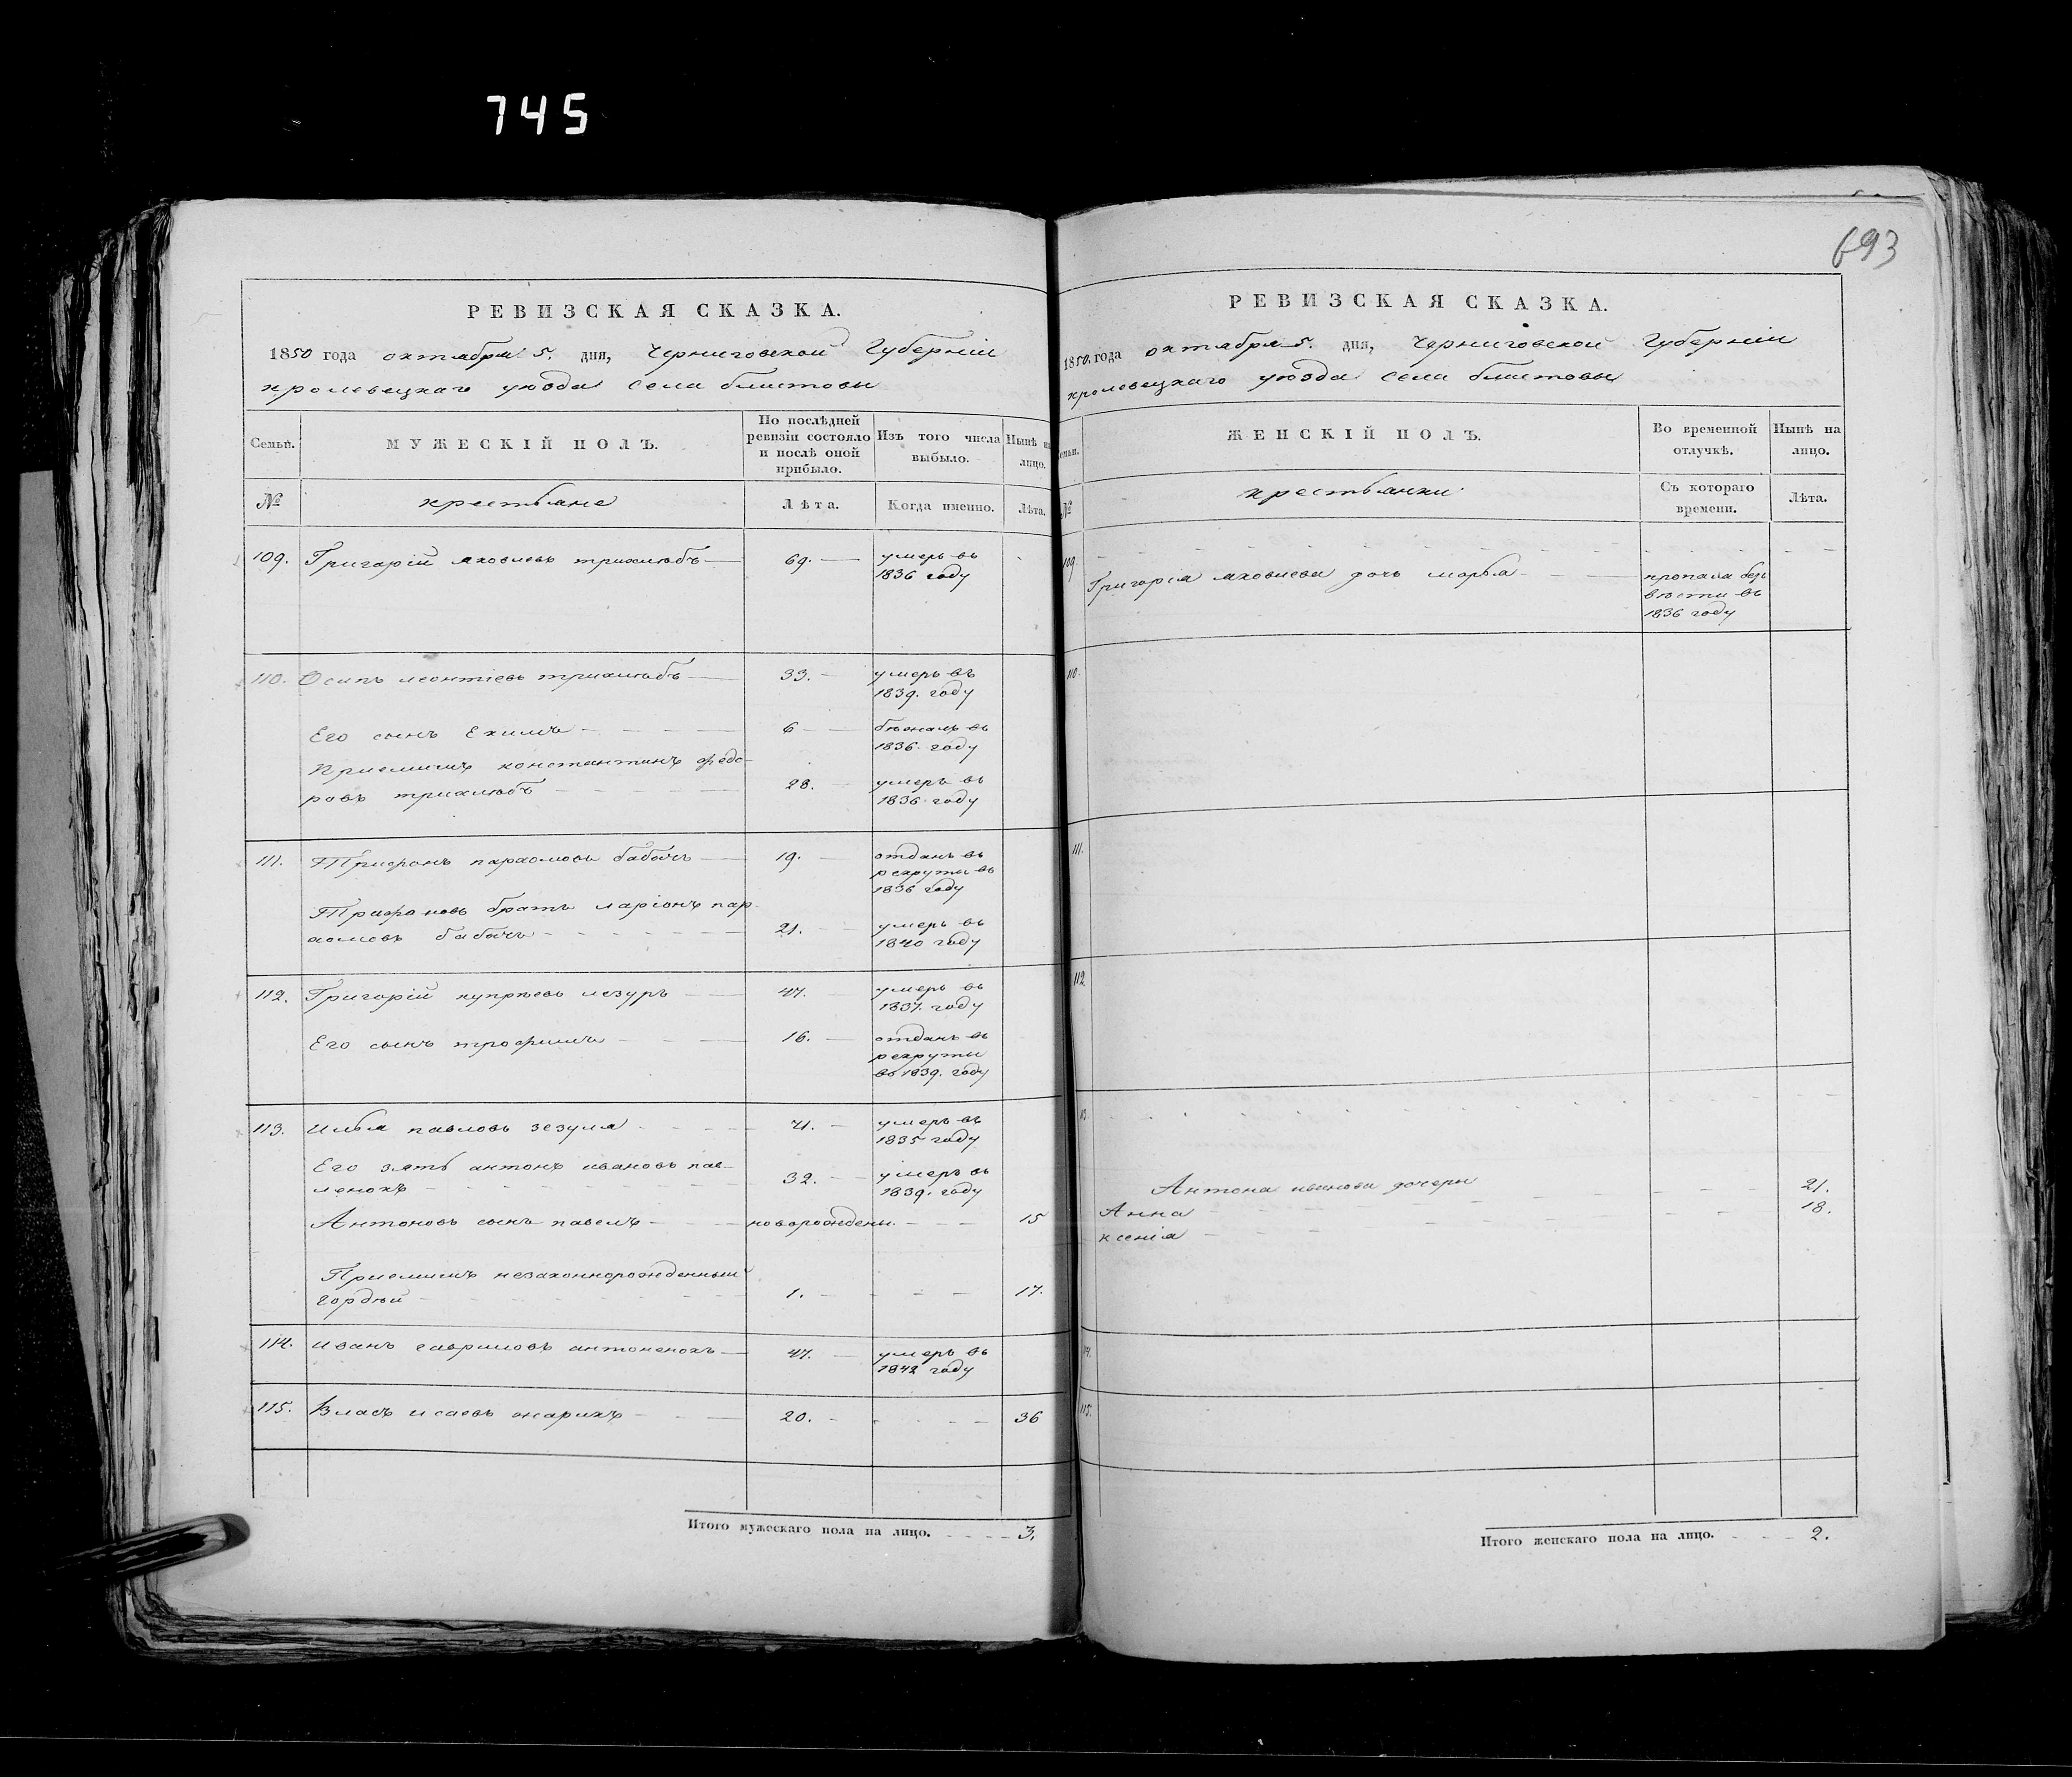 745
693
РЕВИЗСКАЯ СКАЗКА.
1850 года октября 5. дня, Черниговской Губерніи
кролевецкаго уѣзда села блистовы
Семьи.
МУЖЕСКІЙ ПОЛЪ.
По послѣдней
ревизіи состояло
и послѣ оной
прибыло.
Изъ того числа
выбыло.
Нынѣ на
лицо.
№
крестьяне
Лѣта.
Когда именно.
Лѣта.
109. Григорій яковлевъ трихлѣбъ 69. умеръ въ
1836 году
110. Осипъ леонтіевъ трихлѣбъ 33. умеръ въ
1839. году
Его сынъ Екимъ 6 бѣжалъ въ
1836. году
Приемишъ константинъ федо-
ровъ трихлѣбъ 28. умеръ въ
1836. году
111. Трифонъ пархомовъ бабичъ 19. отданъ въ
рекруты въ
1836 году
Трифоновъ братъ ларіонъ пар-
хомовъ бабичъ 21. умеръ въ
1840 году
112. Григорій купрѣевъ мезуръ 47. умеръ въ
1837. году
Его сынъ трофимъ 16. отданъ въ
рекруты
въ 1839. году
113. Илья павловъ зезуля 71. умеръ въ
1835 году
Его зять антонъ ивановъ пав-
ленокъ 32. умеръ въ
1839. году
Антоновъ сынъ павелъ новорожденъ. 15
Приемишъ незаконнорожденный
Гордѣй 1. 17.
114. Иванъ гавриловъ антоненокъ 47. умеръ въ
1842 году
115. Власъ исаевъ 20. 36
Итого мужескаго пола на лицо. 3.
РЕВИЗСКАЯ СКАЗКА.
1850. года октября 5. дня, Черниговской Губерніи
кролевецкаго уѣзда села блистовы
Семьи.
ЖЕНСКІЙ ПОЛЪ.
Во временной
отлучкѣ.
Нынѣ на
лицо.
№
крестьянки
Съ котораго
времени.
Лѣта.
109
Григорія яковлева дочь марья пропала безъ
вѣсти въ
1836 году
110.
111.
112
13.
Антона иванова дочери
Анна 21.
ксенія 18.
14.
115.
Итого женскаго пола на лицо. 2.